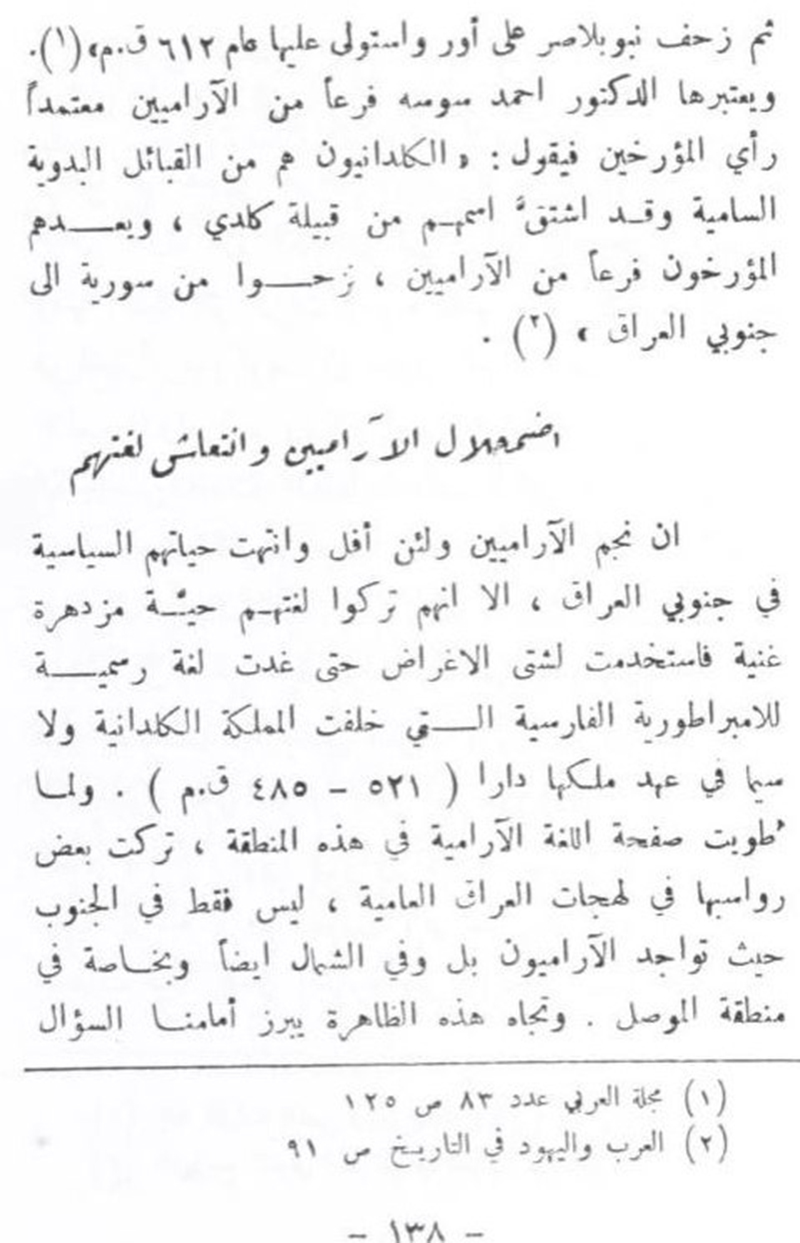 ثم زحف نبوبلاصر على أور واستولى عليها عام ٦١٢ ق.م» (١).
ويعتبرها الدكتور احمد سوسه فرعاً من الآراميين معتمداً
رأي المؤرخين فيقول : « الكلدانيون هم من القبائل البدوية
السامية وقد اشتقَّ اسمهم من قبيلة كلدي ، ويعدهم
المؤرخون فرعاً من الآراميين ، نزحوا من سورية الى
جنوبي العراق » (٢) .
اضمحلال الآراميين وانتعاش لغتهم
ان نجم الآراميين ولئن أفل وانتهت حياتهم السياسية
في جنوبي العراق ، الا انهم تركوا لغتهم حيَّة مزدهرة
غنية فاستخدمت لشتى الاغراض حتى غدت لغة رسمية
للامبراطورية الفارسية التي خلفت المملكة الكلدانية ولا
سيما في عهد ملكها دارا ( ٥٢١ - ٤٨٥ ق.م ) . ولما
طُويت صفحة اللغة الآرامية في هذه المنطقة ، تركت بعض
رواسبها في لهجات العراق العامية ، ليس فقط في الجنوب
حيث تواجد الآراميون بل وفي الشمال ايضاً وبخاصة في
منطقة الموصل . وتجاه هذه الظاهرة يبرز أمامنا السؤال
(١) مجلة العربي عدد ٨٣ ص ١٢٥
(٢) العرب واليهود في التاريخ ص ٩١
- ١٣٨ -